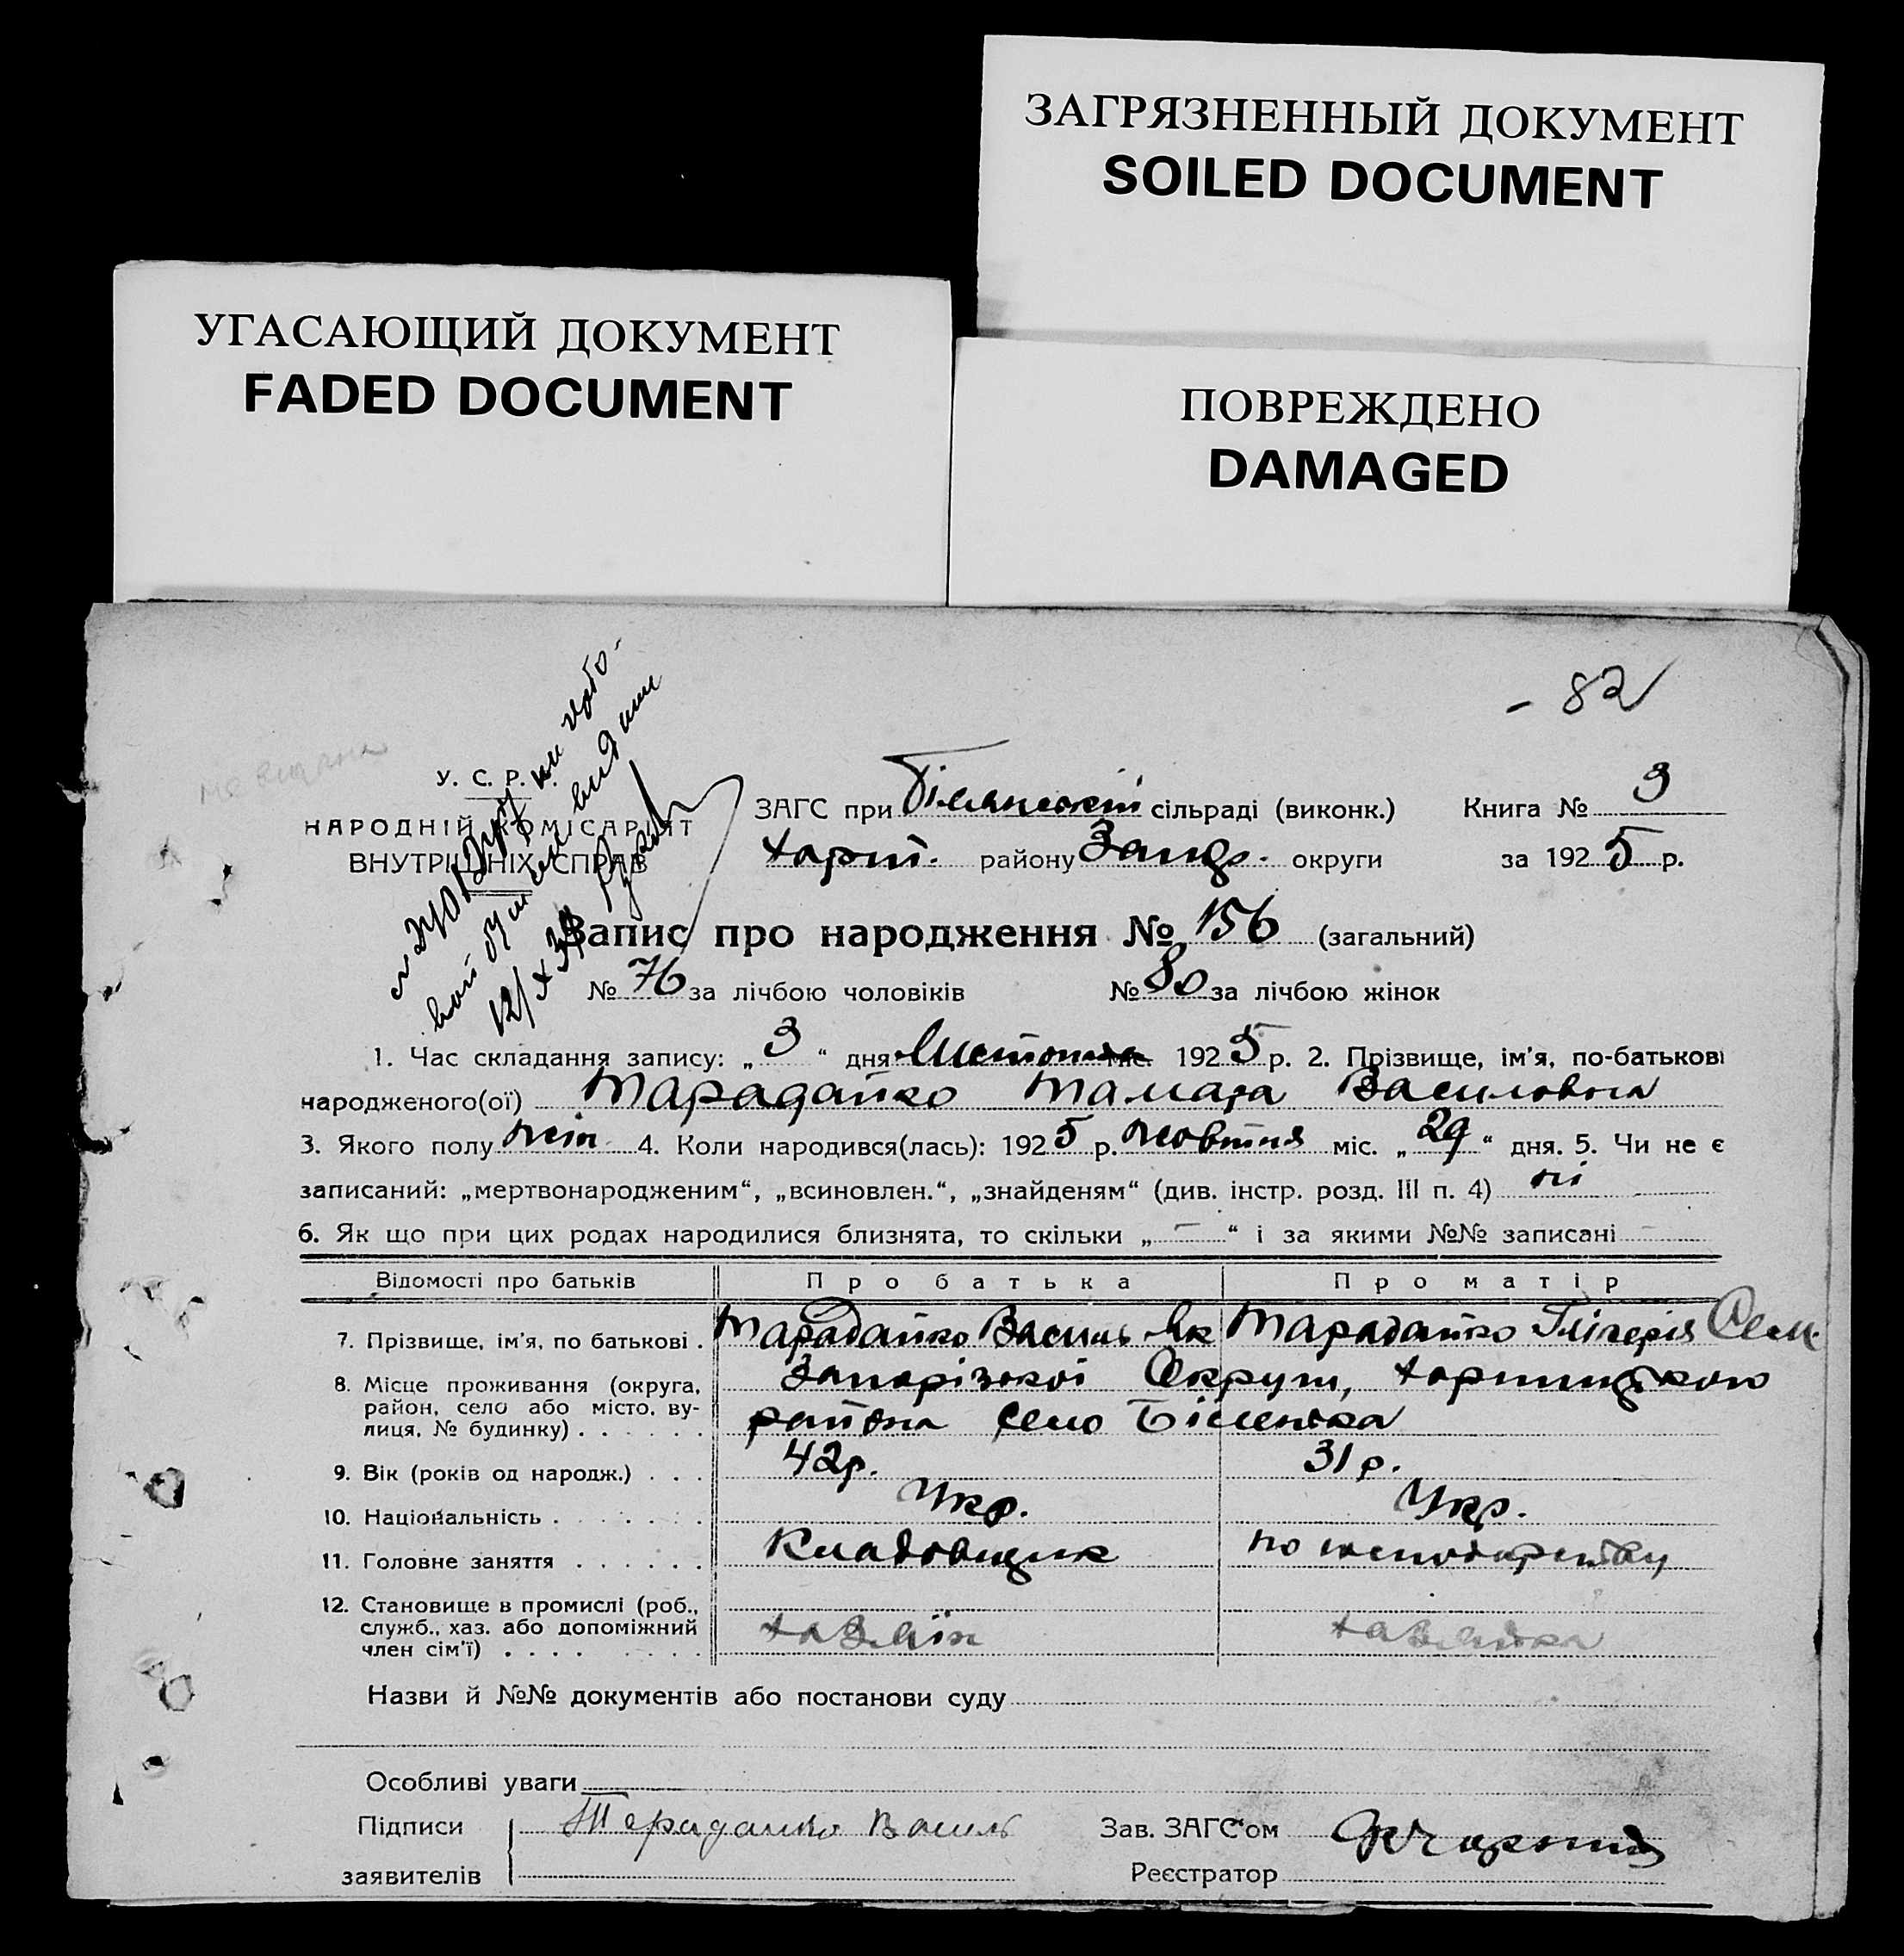 ЗАГРЯЗНЕННЫЙ ДОКУМЕНТ
SOILED DOCUMENT
УГАСАЮЩИЙ ДОКУМЕНТ
FADED DOCUMENT
ПОВРЕЖДЕНО
DAMAGED
- 82
У. С. Р. Р.
НАРОДНІЙ КОМІСАРІЯТ
ВНУТРІШНІХ СПРАВ
ЗАГС при сільраді (виконк.) Книга № 3
Хорт. району Запор. округи за 1925 р.
Запис про народження № 156 (загальний)
№ 76 за лічбою чоловіків № 80 за лічбою жінок
1. Час складання запису: „ 3 “ дня Листопада міс. 1925 р. 2. Прізвище, ім’я, по-батькові
народженого(ої) Тарадайко Тамара Василовна
3. Якого полу жін. 4. Коли народився(лась): 1925 р. жовтня міс. „ 29 “ дня. 5. Чи не є
записаний: „мертвонародженим“, „всиновлен.“, „знайденям“ (див. інстр. розд. III п. 4) ні
6. Як що при цих родах народилися близнята, то скільки „ — “ і за якими №№ записані —
Відомості про батьків Про батька Про матір
7. Прізвище, ім’я, по батькові . Тарадайко Василь Як Тарадайко Глікерія Сем.
8. Місце проживання (округа, Запорізької Округи, Хортицького
район, село або місто, ву- района село Біленька
лиця, № будинку) . . . . . .
9. Вік (років од народж.) . . . 42 р. 31 р.
10. Національність . . . . . . . Укр. Укр.
11. Головне заняття . . . . . . Кладовщик по господарству
12. Становище в промислі (роб.,
служб., хаз. або допоміжний хазяїн хазяйка
член сім’ї) . . . . . . . .
Назви й №№ документів або постанови суду
Особливі уваги
Підписи Тарадайко Василь Зав. ЗАГС‘ом
заявителів Реєстратор